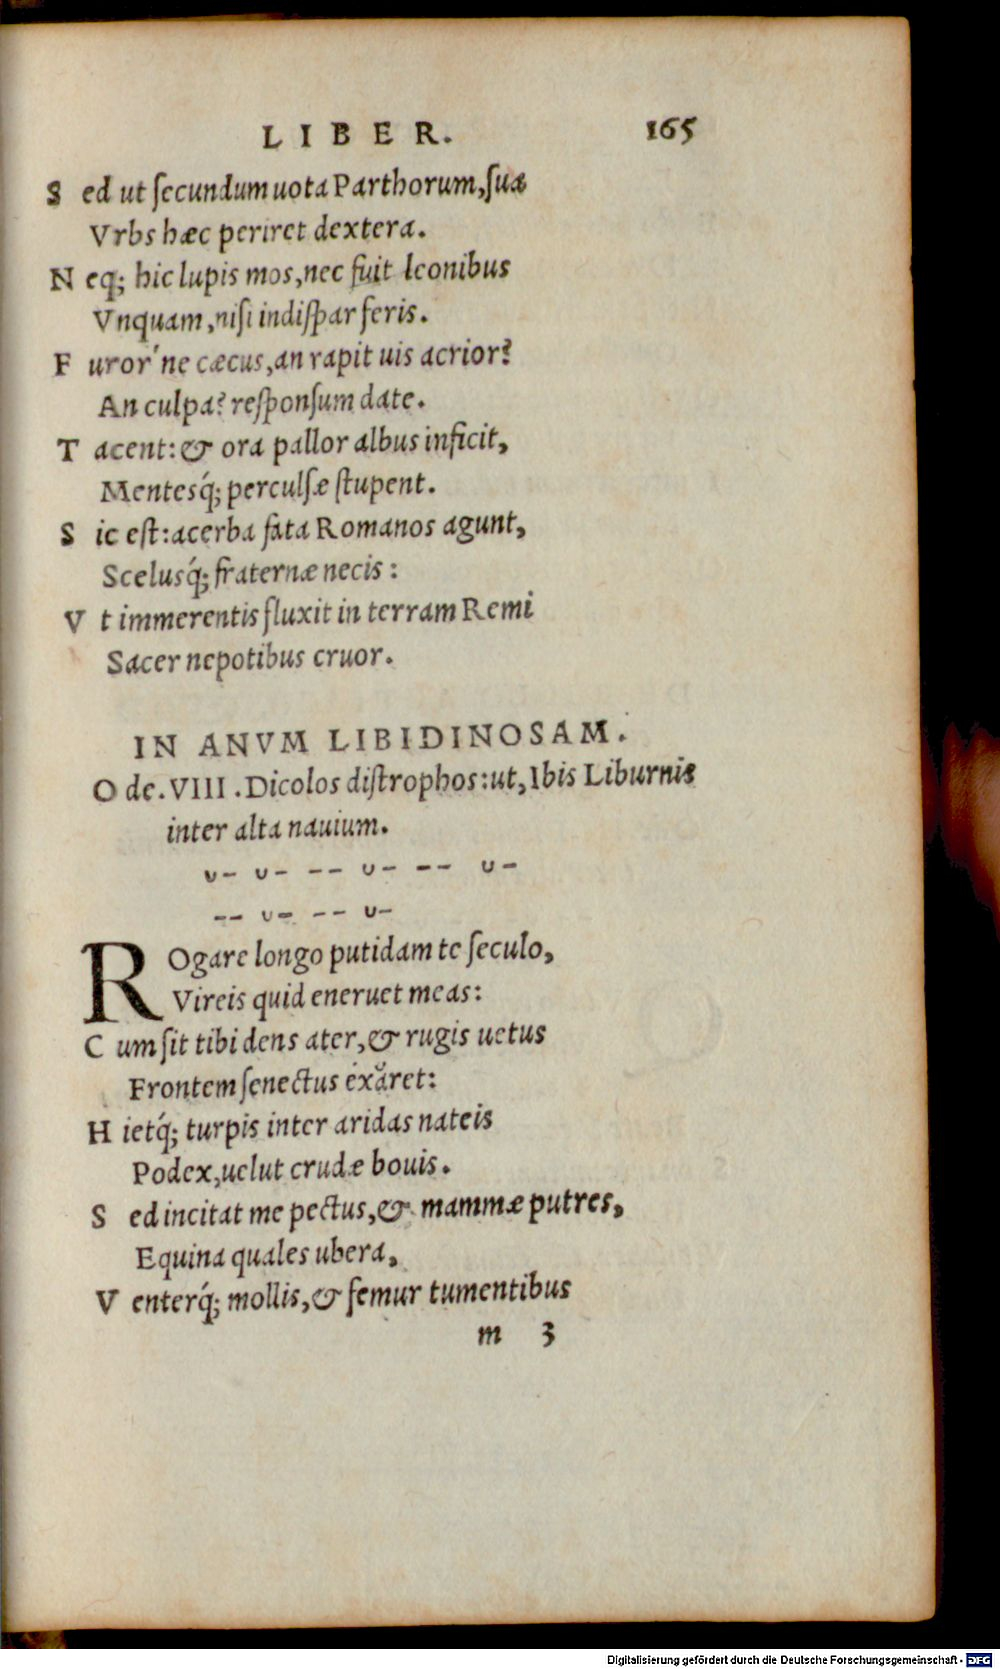 LIBER. 165
S ed ut ſecundum uota Parthorum, ſua
Vrbs hæc periret dextera.
N eq; hic lupis mos, nec fuit leonibus
Vnquam, niſi indiſpar feris.
F uror' ne cæcus, an rapit uis acrior?
An culpa? reſponſum date.
T acent: & ora pallor albus inficit,
Mentesq́; perculſæ ſtupent.
S ic eſt: acerba fata Romanos agunt,
Scelusq́; fraternæ necis:
V t immerentis fluxit in terram Remi
Sacer nepotibus cruor.
IN ANVM LIBIDINOSAM.
O de. VIII. Dicolos diſtrophos: ut, Ibis Liburnis
inter alta nauium.
∪– ∪– –– ∪– –– ∪–
–– ∪– –– ∪–
ROgare longo putidam te ſeculo,
Vireis quid eneruet meas:
C um ſit tibi dens ater, & rugis uetus
Frontem ſenectus exăret:
H ietq́; turpis inter aridas nateis
Podex, uelut crudæ bouis.
S ed incitat me pectus, & mammæ putres,
Equina quales ubera,
V enterq́; mollis, & femur tumentibus
m 3
Digitalisierung gefördert durch die Deutsche Forschungsgemeinschaft - DFG